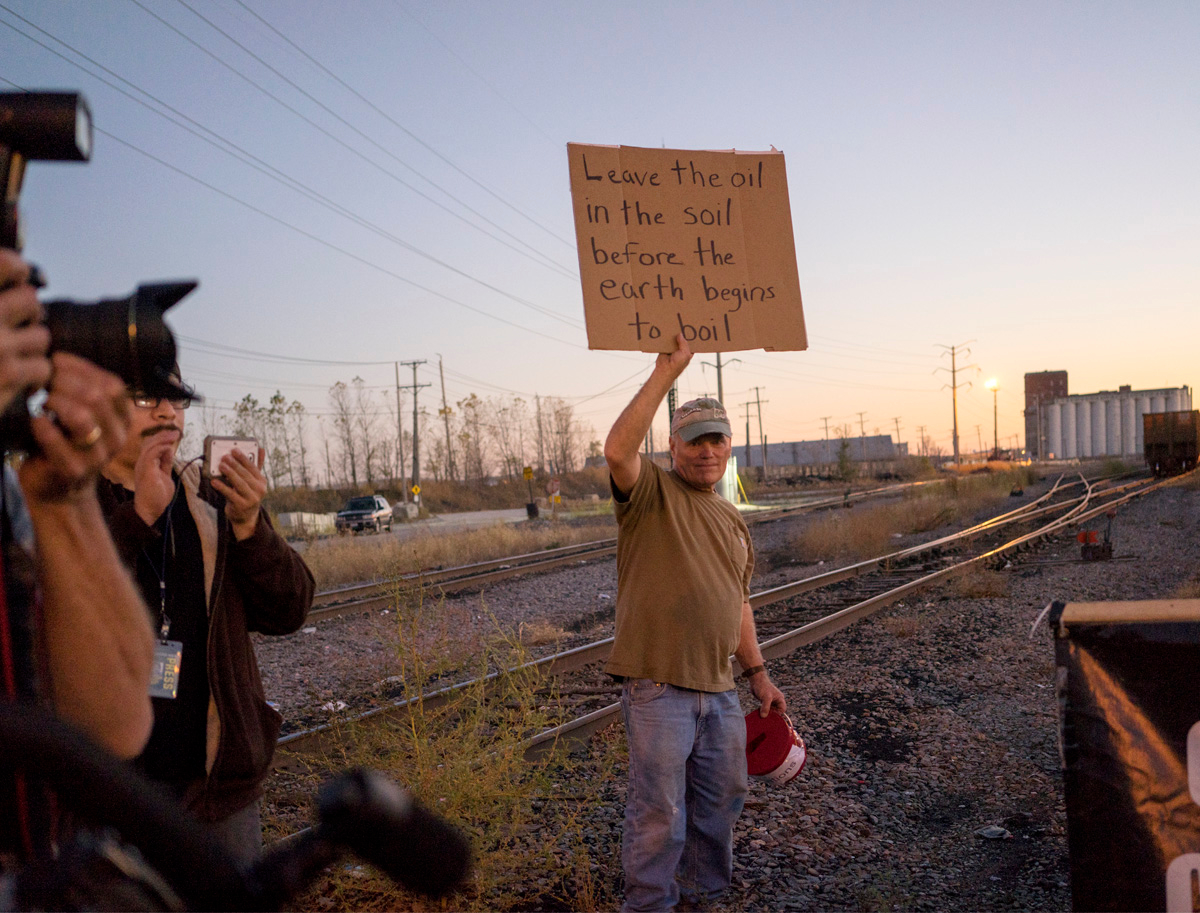 Leave the oil
in the soil
before the
earth begins
to boil
PRESS